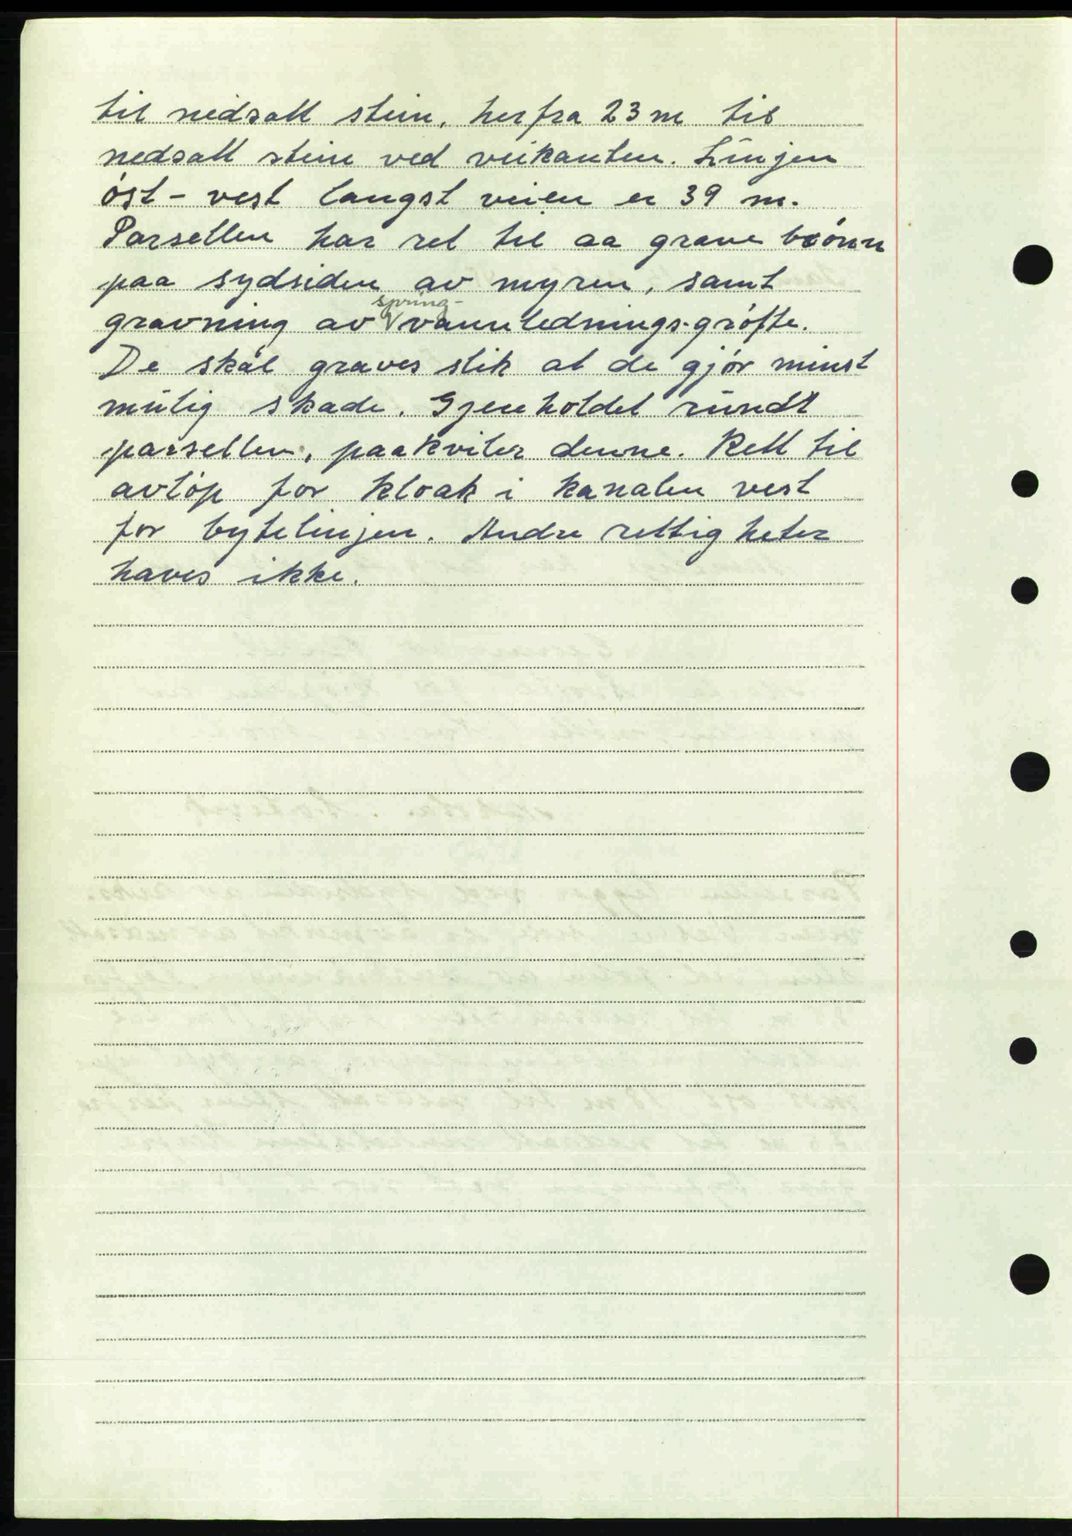 til nedsatt stein, herfra 23 m til
nedsatt stein ved veikanten. Linjen
öst - vest langst veien er 39 m.
Parsellen har ret til aa grave brönn
paa sydsiden av myren, samt
gravning av spring-vannlednings-gröfte.
De skal graves slik at de gjör minst
mulig skade. Gjeholdet rundt
parsellen, paakviler denne. Rett til
avlöp for kloak i kanalen vest
for bytelinjen. Andre rettigheter
haves ikke.